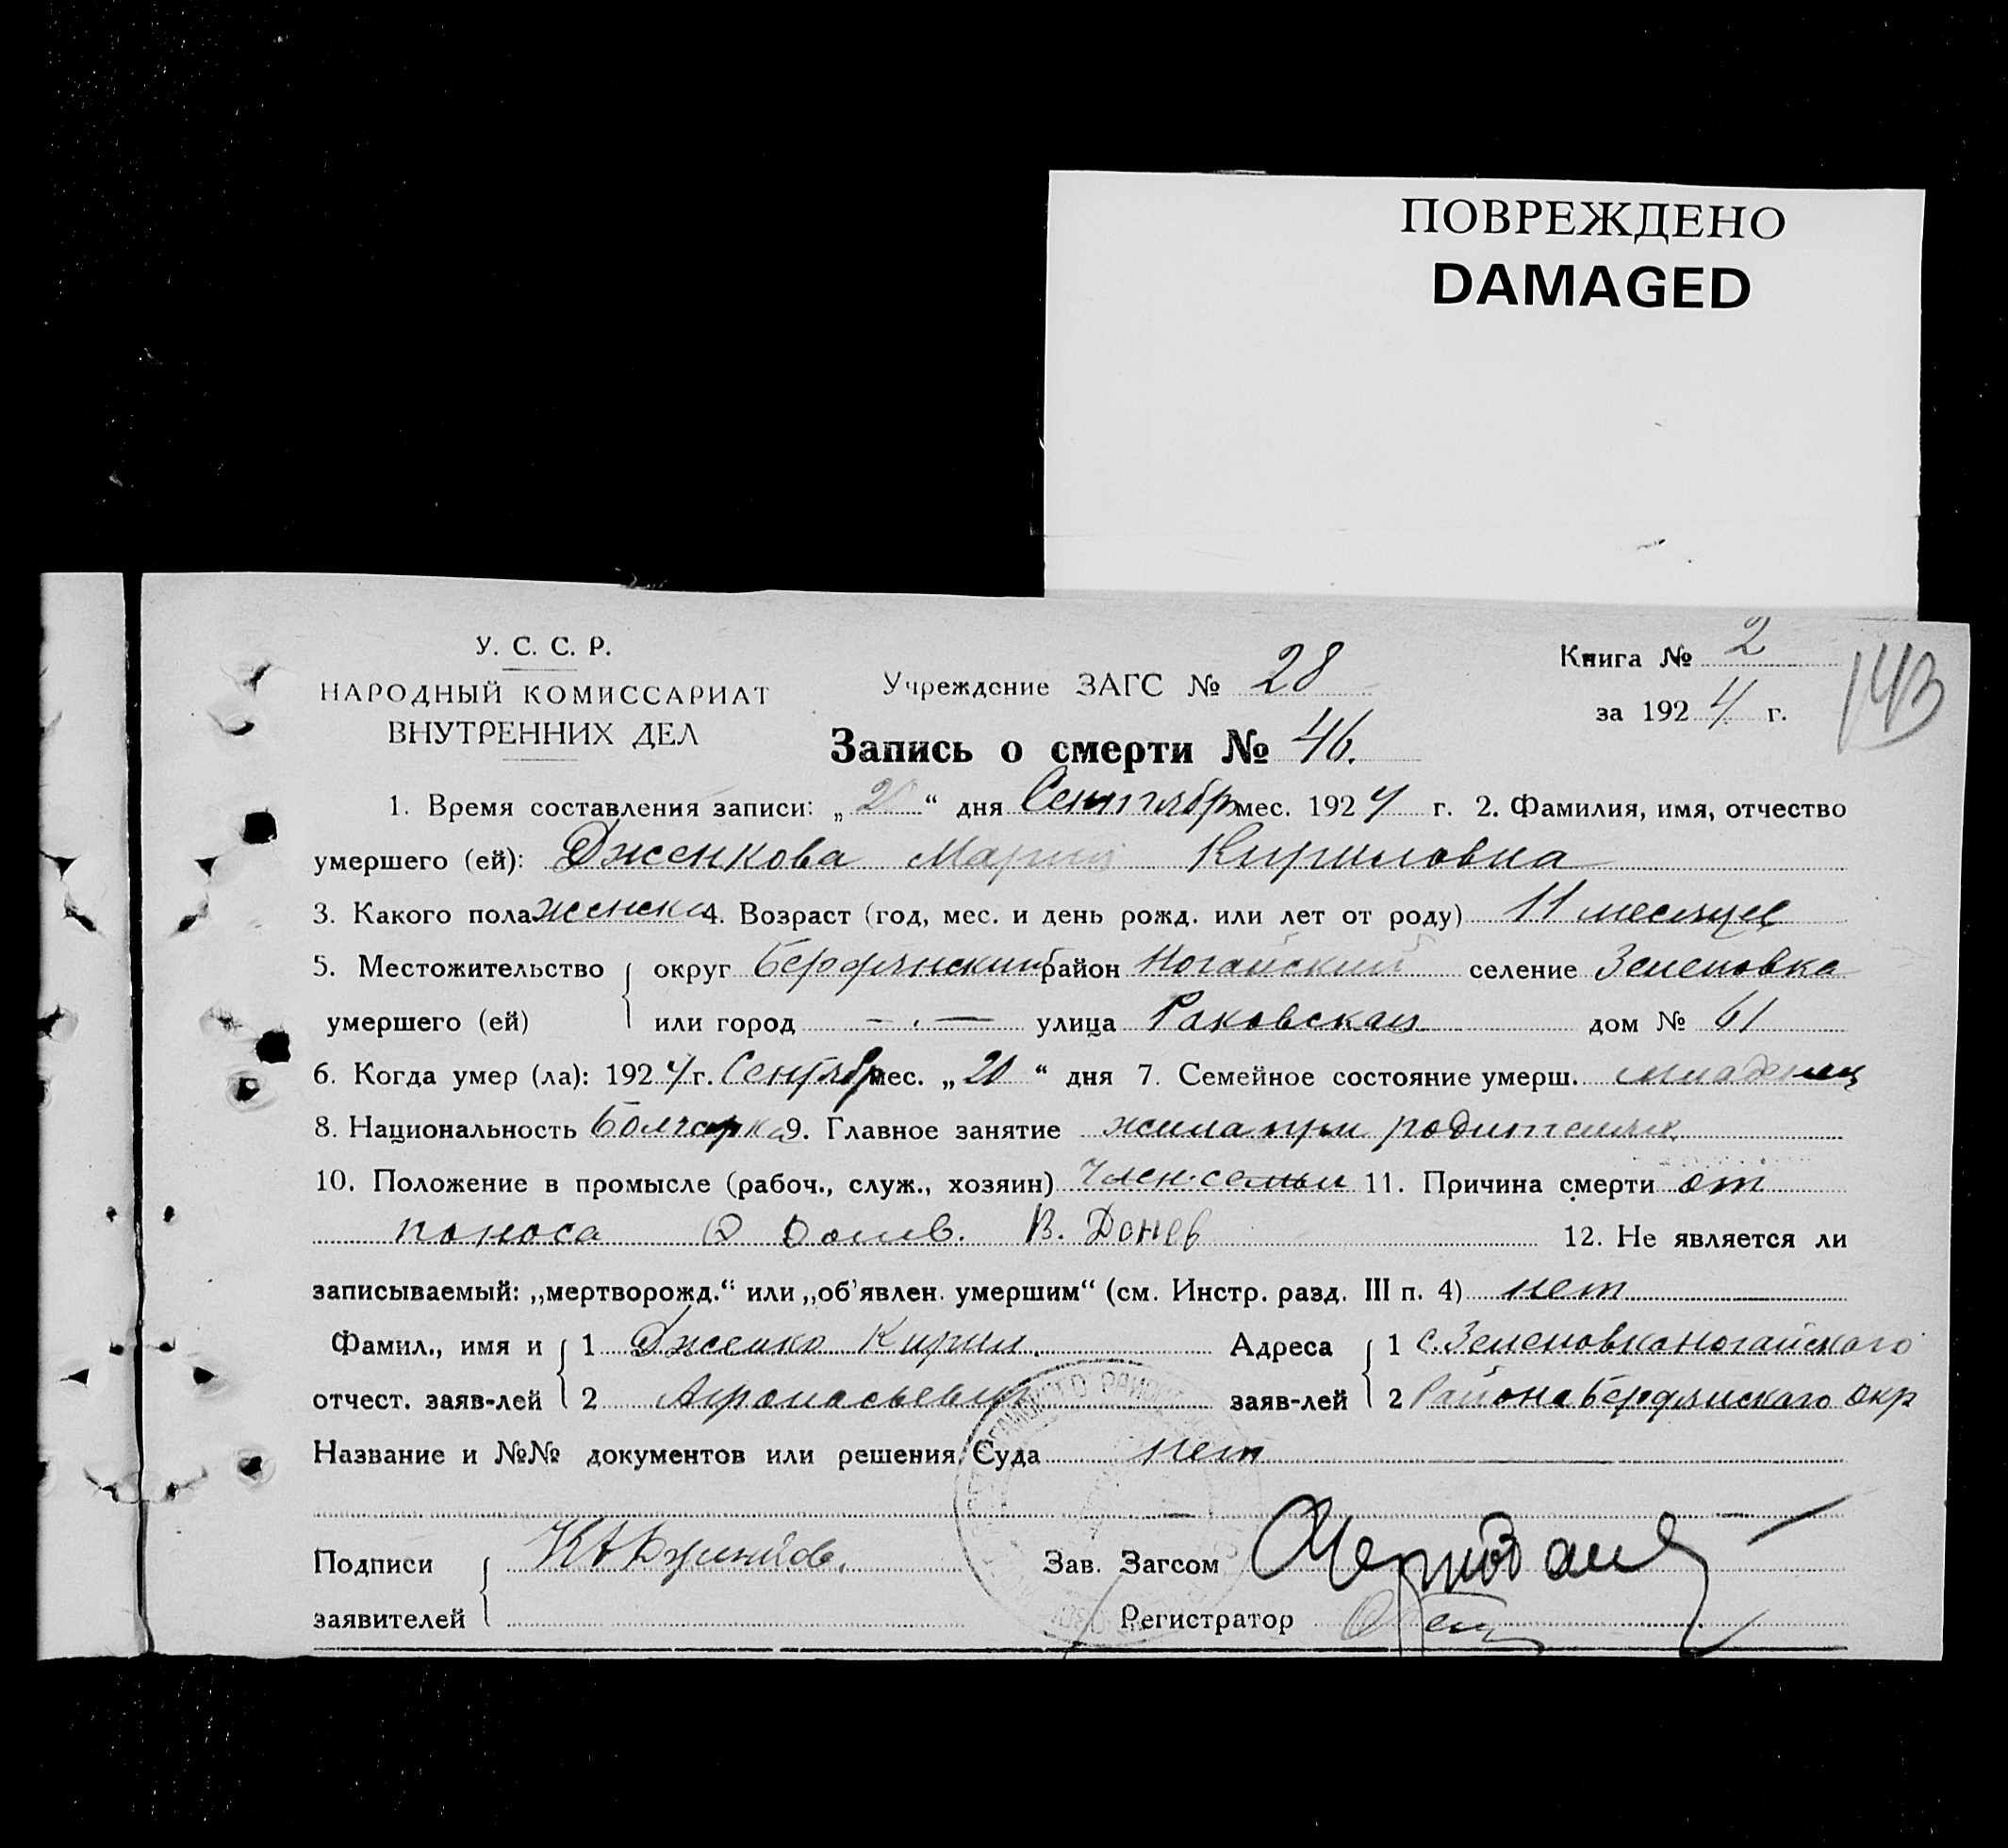 ПОВРЕЖДЕНО
DAMAGED
У. С. С. Р.
НАРОДНЫЙ КОМИССАРИАТ
ВНУТРЕННИХ ДЕЛ
Учреждение ЗАГС № 28
Книга № 2
за 1924 г.
143
Запись о смерти № 46.
1. Время составления записи: „20“ дня Сентябр мес. 1924 г. 2. Фамилия, имя, отчество
умершего (ей): Дженкова Мария Кириловна
3. Какого пола женска 4. Возраст (год, мес. и день рожд. или лет от роду) 11 месяцев
5. Местожительство округ Бердянский район Ногайский селение Зеленовка
умершего (ей) или город — . — улица Раковская дом № 61
6. Когда умер (ла): 1924 г. Сентябр мес. „20“ дня 7. Семейное состояние умерш. младенец
8. Национальность болгарка 9. Главное занятие жила при родителях
10. Положение в промысле (рабоч., служ., хозяин) Член семьи 11. Причина смерти от
поноса В. Донев 12. Не является ли
записываемый: „мертворожд.“ или „об'явлен. умершим“ (см. Инстр. разд. III п. 4) нет
Фамил., имя и 1 Дженко Кирил. Адреса 1 с. Зеленовка Ногайского
отчест. заяв-лей 2 Афонасьевич заяв-лей 2 Района Бердянскаго окр
Название и №№ документов или решения Суда нет
Подписи Зав. Загсом
заявителей Регистратор